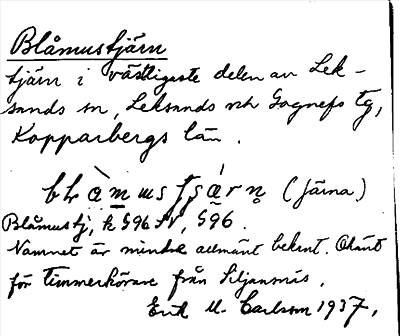 Blåmustjärn
tjärn i västligaste delen av Lek-
sands sn, Leksands och Gagnefs tg,
Kopparbergs län.
(Järna)
Blåmustj, k 596 SV, 596.
Namnet är mindre allmänt bekant. Okänt
för timmerkörare från Siljansnäs.
Erik M. Carlsson 1937.